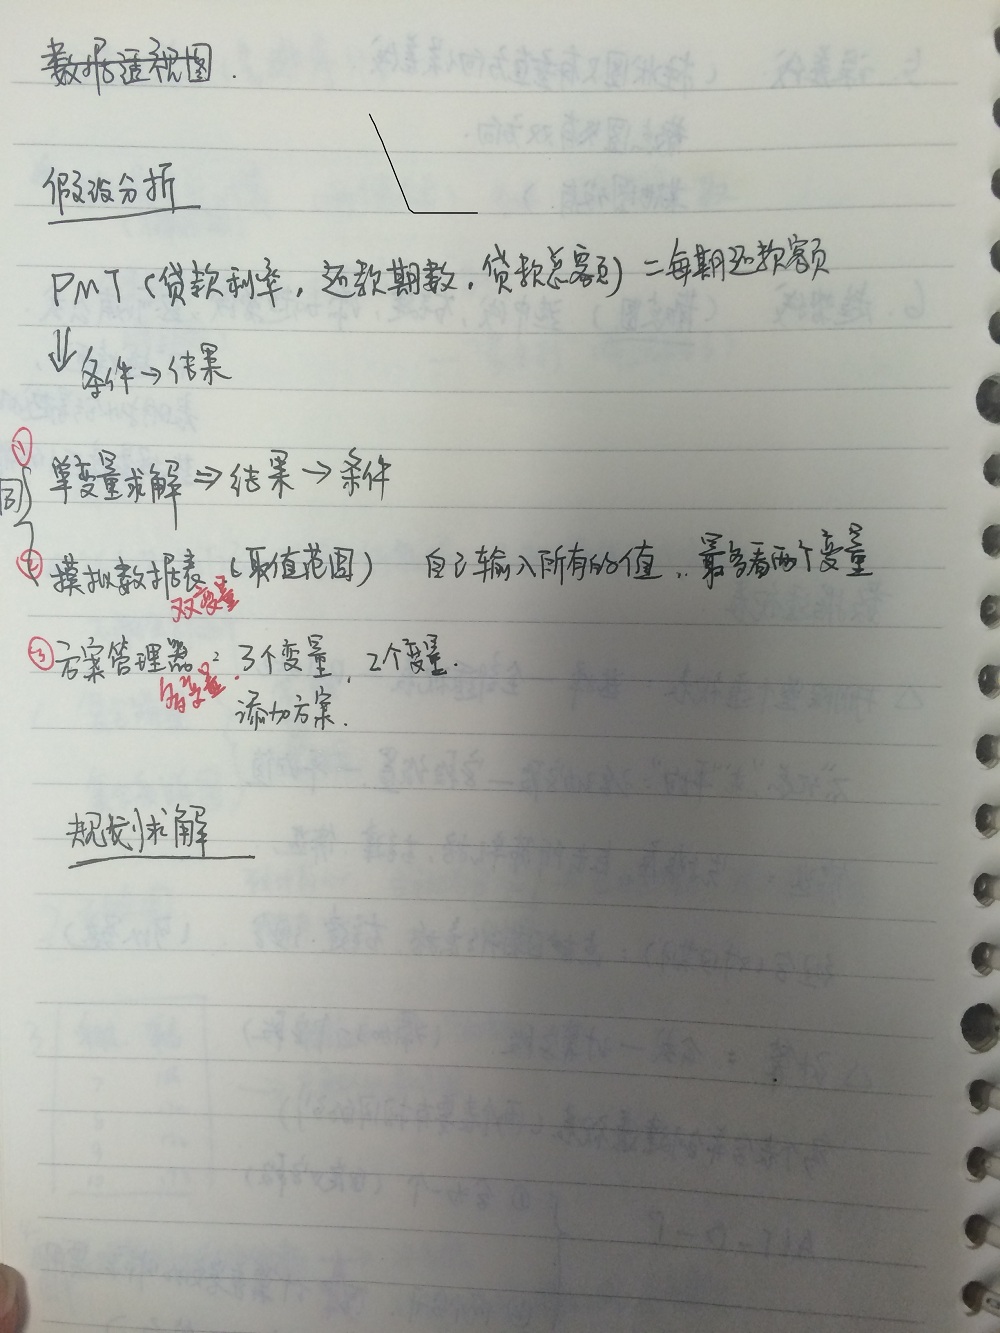 数据透视图.
假设分析
PMT(贷款利率,还款期数,贷款总额)=每期还款额
⇓条件→结果
① 单变量求解⇒结果→条件
② 模拟数据表(取值范围) 自己输入所有的值,最多看两个变量
双变量
③ 方案管理器. 3个变量, 2个变量.
多变量.
添加方案.
规划求解